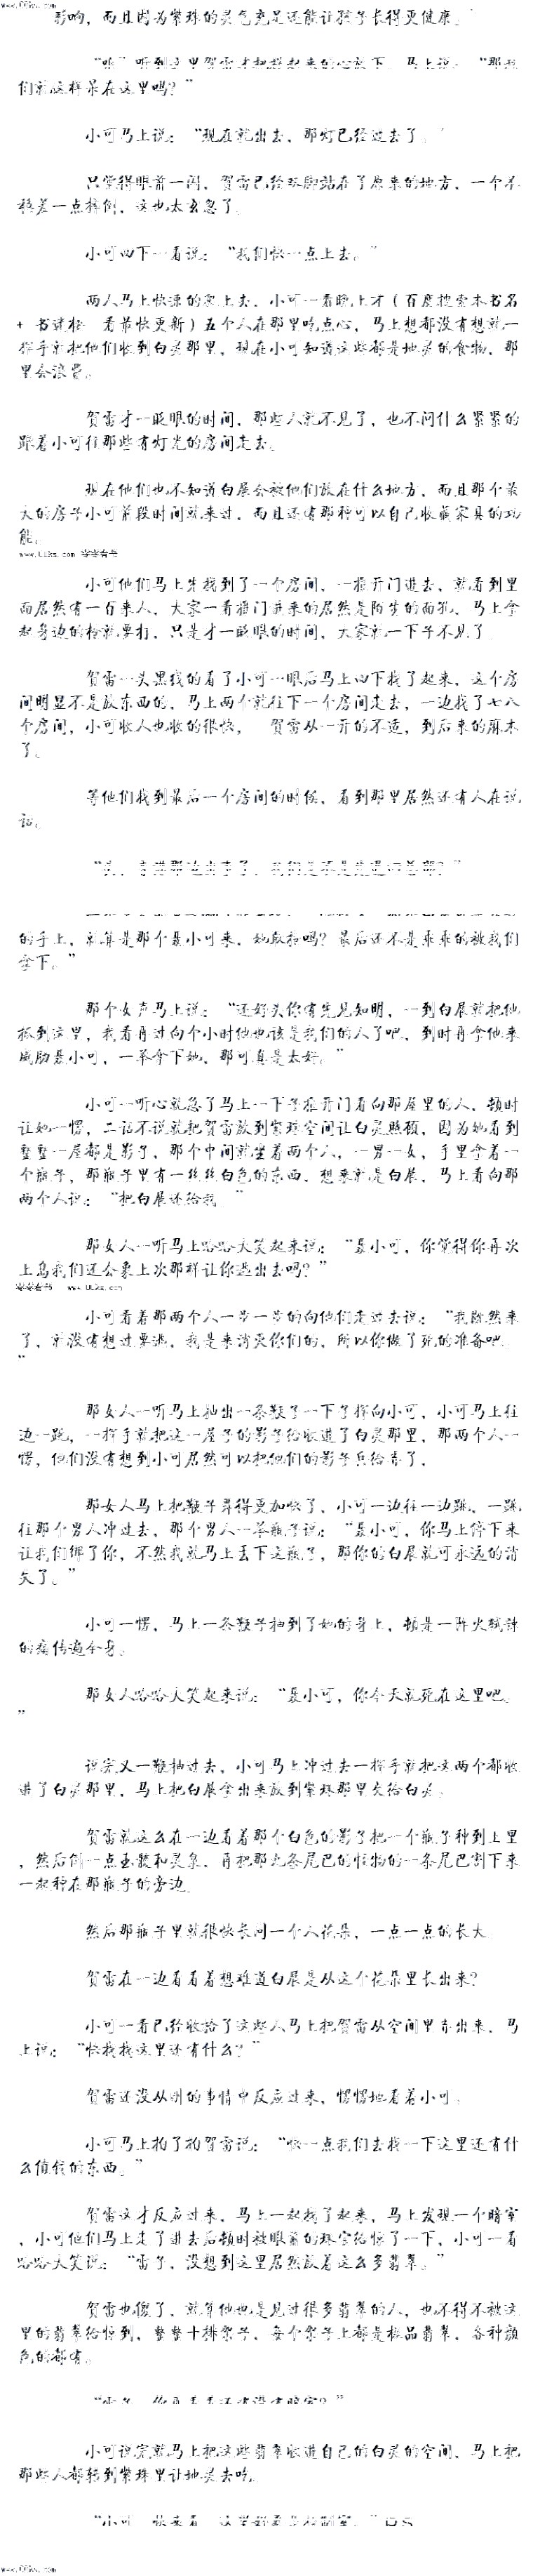 www.00ks.com
影响，而且因为紫珠的灵气充足还能让孩子长得更健康。”
“嗯”听到这里贺雷才把提起来的心放下，马上说：“那我
们就这样呆在这里吗？”
小可马上说：“现在就出去，那灯已经过去了。”
只觉得眼前一闪，贺雷已经双脚站在了原来的地方，一个不
稳差一点摔倒，这也太玄忽了。
小可四下一看说：“我们快一点上去。”
两人马上快速的窜上去，小可一看晚上才（百度搜索本书名
+ 书读松 看最快更新）五个人在那里吃点心，马上想都没有想就一
挥手就把他们收到白灵那里，现在小可知道这些都是地灵的食物，那
里会浪费。
贺雷才一眨眼的时间，那些人就不见了，也不问什么紧紧的
跟着小可往那些有灯光的房间走去。
现在他们也不知道白展会被他们放在什么地方，而且那个最
大的房子小可前段时间就来过，而且还有那种可以自己收藏家具的功
能。
小可他们马上先找到了一个房间，一推开门进去，就看到里
面居然有一百来人，大家一看推门进来的居然是陌生的面孔，马上拿
起身边的枪就要打，只是才一眨眼的时间，大家就一下子不见了。
贺雷一头黑线的看了小可一眼后马上四下找了起来，这个房
间明显不是放东西的，马上两个就往下一个房间走去，一边找了七八
个房间，小可收人也收的很快， 贺雷从一开的不适，到后来的麻木
了。
等他们找到最后一个房间的时候，看到那里居然还有人在说
话。
的手上，就算是那个聂小可来，她敢和吗？最后还不是乖乖的被我们
拿下。”
那个女声马上说：“还好头你有先见知明，一到白展就把他
抓到这里，我看再过向个小时他也该是我们的人了吧，到时再拿他来
威胁聂小可，一举拿下她，那可真是太好。”
小可一听心就急了马上一下子推开门看向那屋里的人，顿时
让她一愣，二话不说就把贺雷放到紫珠空间让白灵照顾，因为她看到
整整一屋都是影子，那个中间就坐着两个人，一男一女，手里拿着一
个瓶子，那瓶子里有一丝丝白色的东西，想来就是白展，马上看向那
两个人说：“把白展还给我。”
那女人一听马上哈哈大笑起来说：“聂小可，你觉得你再次
上岛我们还会象上次那样让你逃出去吗？”
小可看着那两个人一步一步的向他们走过去说：“我既然来
了，就没有想过要逃，我是来消灭你们的，所以你做了死的准备吧。
”
那女人一听马上抽出一条鞭子一下子挥向小可，小可马上往
边一跳，一挥手就把这一屋子的影子给收进了白灵那里，那两个人一
愣，他们没有想到小可居然可以把他们的影子兵给弄了，
那女人马上把鞭子舞得更加快了，小可一边往一边跳，一跳
往那个男人冲过去，那个男人一举瓶子说：“聂小可，你马上停下来
让我们绑了你，不然我就马上丢下这瓶子，那你的白展就可永远的消
失了。”
小可一愣，马上一条鞭子抽到了她的身上，顿是一阵火辣辣
的痛传遍全身。
那女人哈哈大笑起来说：“聂小可，你今天就死在这里吧。
”
说完又一鞭抽过去，小可马上冲过去一挥手就把这两个都收
进了白灵那里，马上把白展拿出来放到紫珠那里交给白灵。
贺雷就这么在一边看着那个白色的影子把一个瓶子种到土里
，然后倒一点玉髓和灵泉，再把那九条尾巴的怪物的一条尾巴割下来
一起种在那瓶子的旁边。
然后那瓶子里就很快长间一个人花朵，一点一点的长大。
贺雷在一边看看着想难道白展是从这个花朵里长出来？
小可一看已经收拾了这些人马上把贺雷从空间里弄出来，马
上说：“快找找这里还有什么？”
贺雷还没从刚的事情中反应过来，愣愣地看着小可。
小可马上拍了拍贺雷说：“快一点我们去找一下这里还有什
么值钱的东西。”
贺雷这才反应过来，马上一起找了起来，马上发现一个暗室
，小可他们马上走了进去后顿时被眼前的珠宝给惊了一下，小可一看
哈哈大笑说：“雷子，没想到这里居然放着这么多翡翠。”
贺雷也傻了，就算他也是见过很多翡翠的人，也不得不被这
里的翡翠给惊到，整整十排架子，每个架子上都是极品翡翠，各种颜
色的都有。
小可说完就马上把这些翡翠收进自己的白灵的空间，马上把
那些人都转到紫珠里让地灵去吃。
www.00ks.com